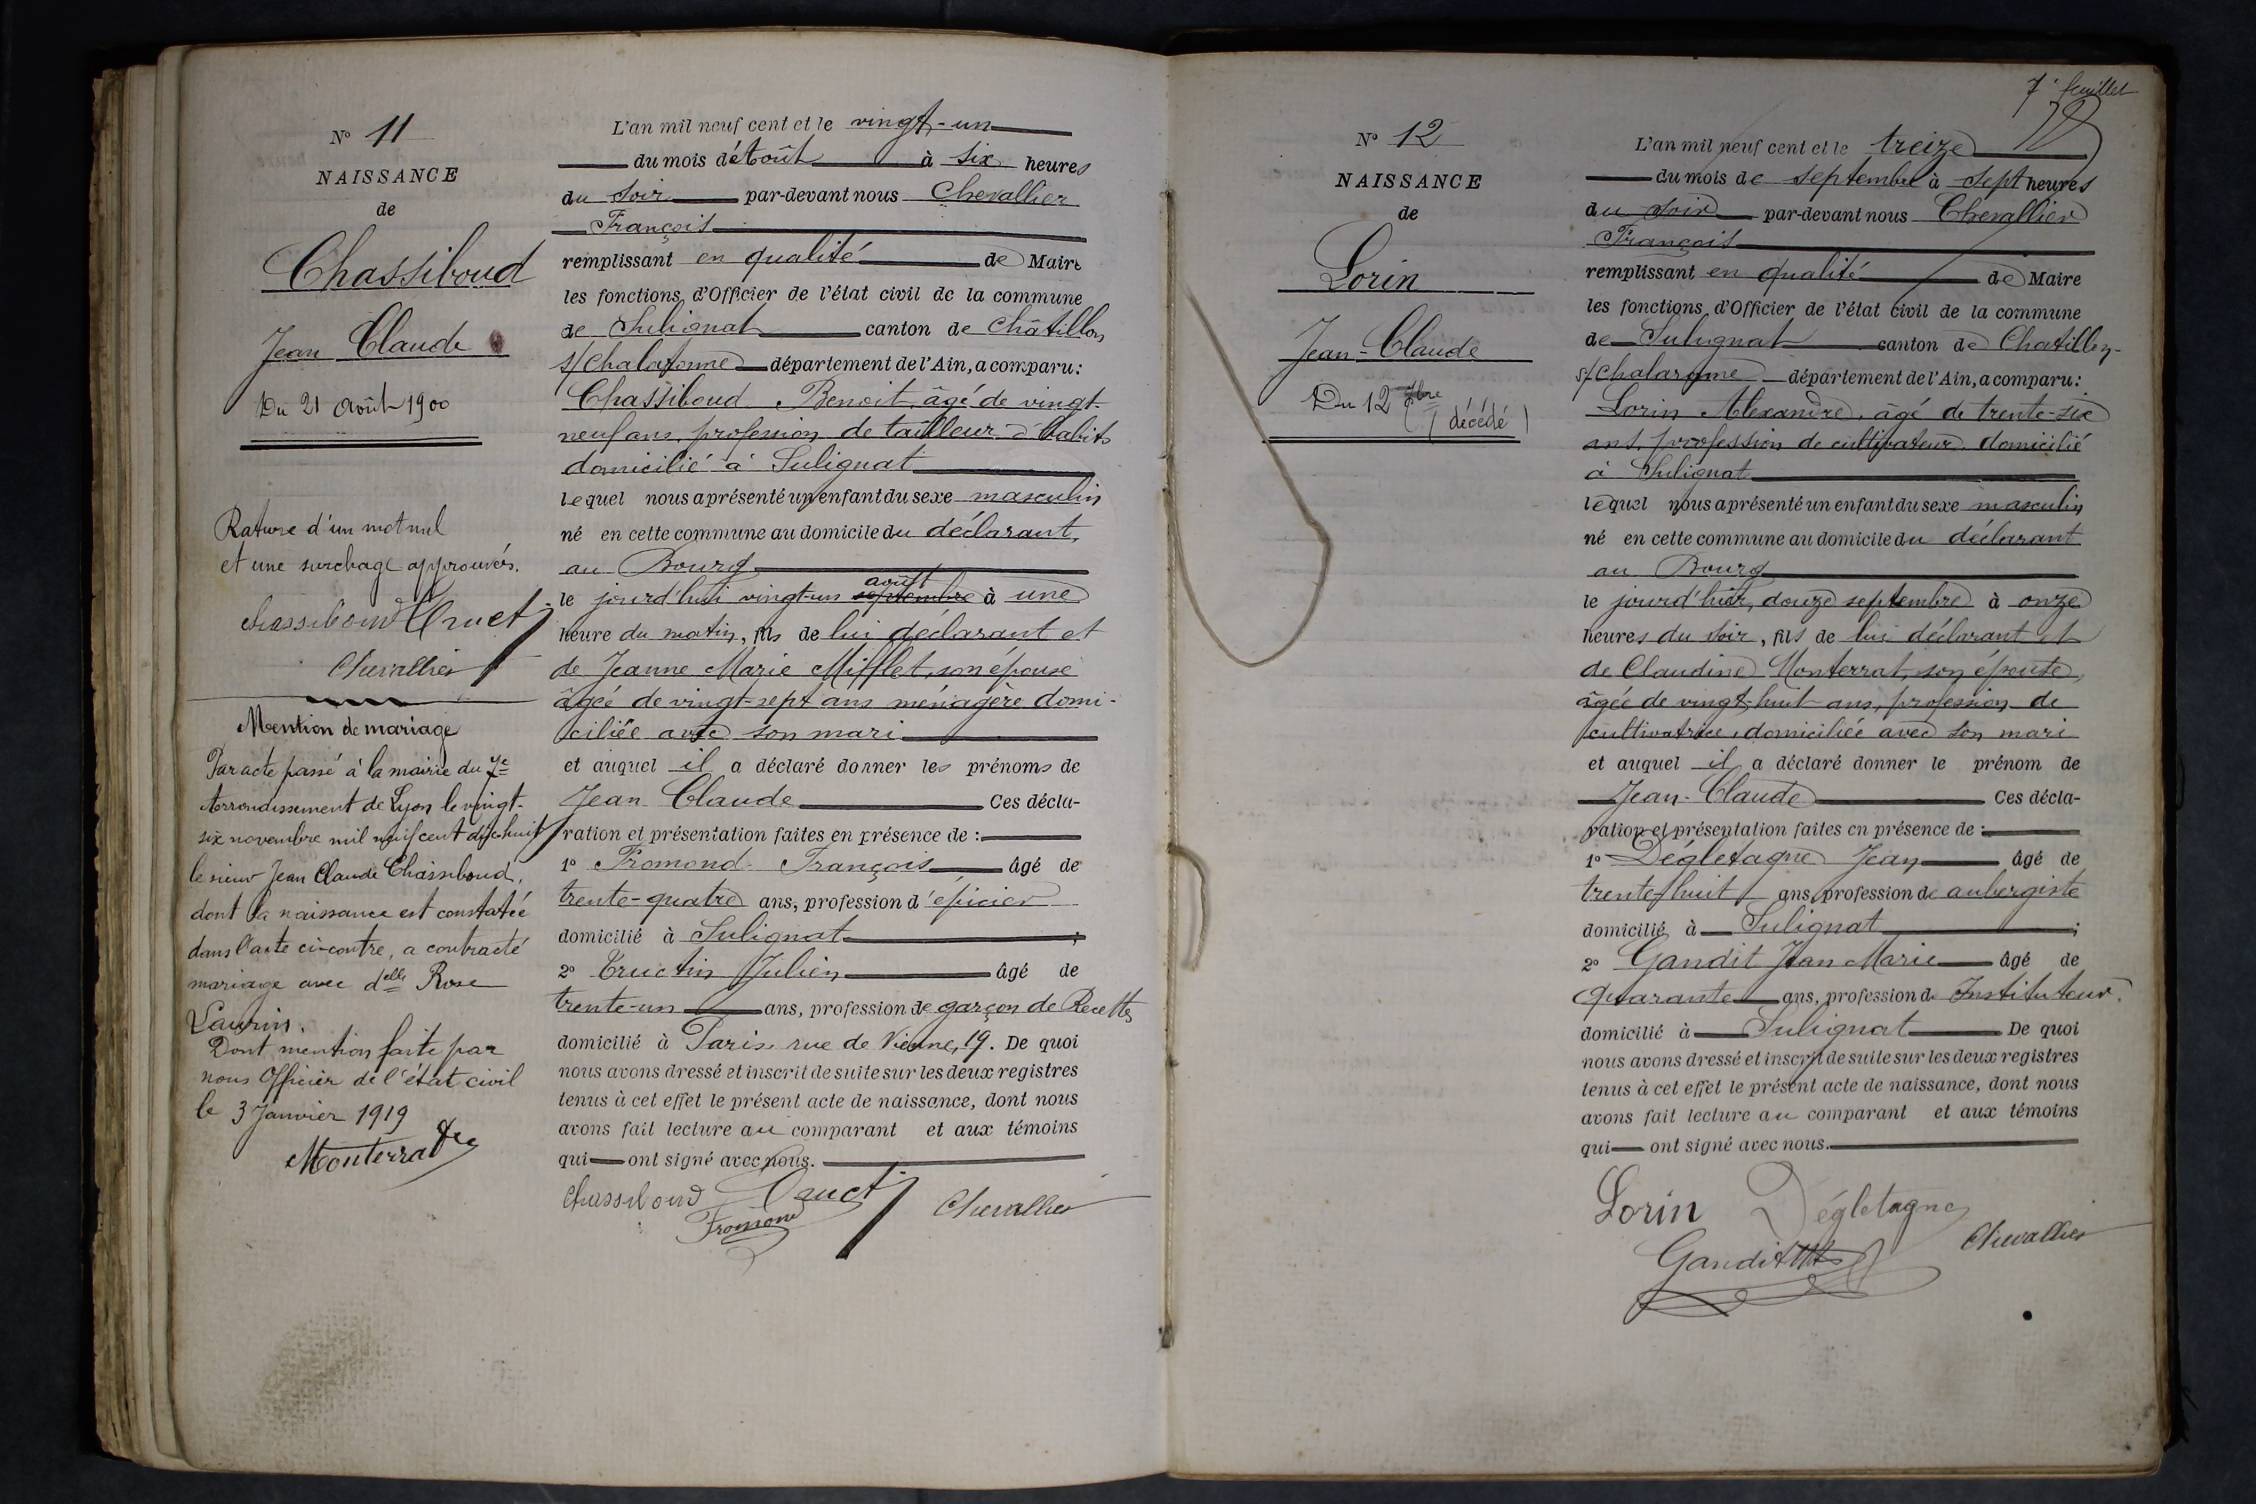 N° 11
NAISSANCE
de
Chassiboud
Jean Claude
Du 21 Août 1900
Rature d'un mot nul
et une surchage approuvés.
Chassiboud Truct
Chevallier
Mention de mariage
Par acte passé à la mairie du 7e
Arrondissement de Lyon le vingt-
six novembre mil neuf cent dix-huit
le sieur Jean Claude Chassiboud,
dont la naissance est constatée
dans l'acte ci-contre, a contracté
mariage avec delle Rose
Laurin.
Dont mention faite par
nous Officier de l'état civil
le 3 Janvier 1919
Monterrat
L'an mil neuf cent et le vingt-un
du mois d'Août à six heures
du soir par-devant nous Chevallier
François
remplissant en qualité de Maire
les fonctions d'Officier de l'état civil de la commune
de Sulignat canton de Châtillon
s/Chalaronne département de l'Ain, a comparu:
Chassiboud Benoit, âgé de vingt-
neuf ans, profession de tailleur d'habits
domicilié à Sulignat
lequel nous a présenté un enfant du sexe masculin
né en cette commune au domicile du déclarant,
au Bourg
août
le jourd'hui vingt-un septembre à une
heure du matin, fils de lui déclarant et
de Jeanne Marie Mifflet, son épouse
âgée de vingt-sept ans ménagère domi-
ciliée avec son mari
et auquel il a déclaré donner les prénoms de
Jean Claude Ces décla-
ration et présentation faites en présence de :
1° Fromond François âgé de
trente-quatre ans, profession d'épicier
domicilié à Sulignat ;
2° Tructin Julien âgé de
trente-un ans, profession de garçon de Recettes
domicilié à Paris rue de Vienne, 19. De quoi
nous avons dressé et inscrit de suite sur les deux registres
tenus à cet effet le présent acte de naissance, dont nous
avons fait lecture au comparant et aux témoins
qui ont signé avec nous.
Chassiboud Truct Chevallier
Fromond
7e feuillet
N° 12
NAISSANCE
de
Lorin
Jean-Claude
Du 12 7bre
(décédé)
L'an mil neuf cent et le treize
du mois de septembre à sept heures
du soir par-devant nous Chevallier
François
remplissant en qualité de Maire
les fonctions d'Officier de l'état civil de la commune
de Sulignat canton de Chatillon-
s/Chalaronne département de l'Ain, a comparu:
Lorin Alexandre, âgé de trente-six
ans, profession de cultivateur, domicilié
à Sulignat
lequel nous a présenté un enfant du sexe masculin
né en cette commune au domicile du déclarant
au Bourg
le jourd'hier, douze septembre à onze
heures du soir, fils de lui déclarant et
de Claudine Monterrat, son épouse,
âgée de vingt-huit ans, profession de
cultivatrice, domiciliée avec son mari
et auquel il a déclaré donner le prénom de
Jean-Claude Ces décla-
ration et présentation faites en présence de :
1° Dégletagne Jean âgé de
trente-huit ans, profession de aubergiste
domicilié à Sulignat ;
2° Gandit Jean Marie âgé de
quarante ans, profession d. Instituteur.
domicilié à Sulignat De quoi
nous avons dressé et inscrit de suite sur les deux registres
tenus à cet effet le présent acte de naissance, dont nous
avons fait lecture au comparant et aux témoins
qui ont signé avec nous.
Lorin Dégletagne
Gandit Chevallier